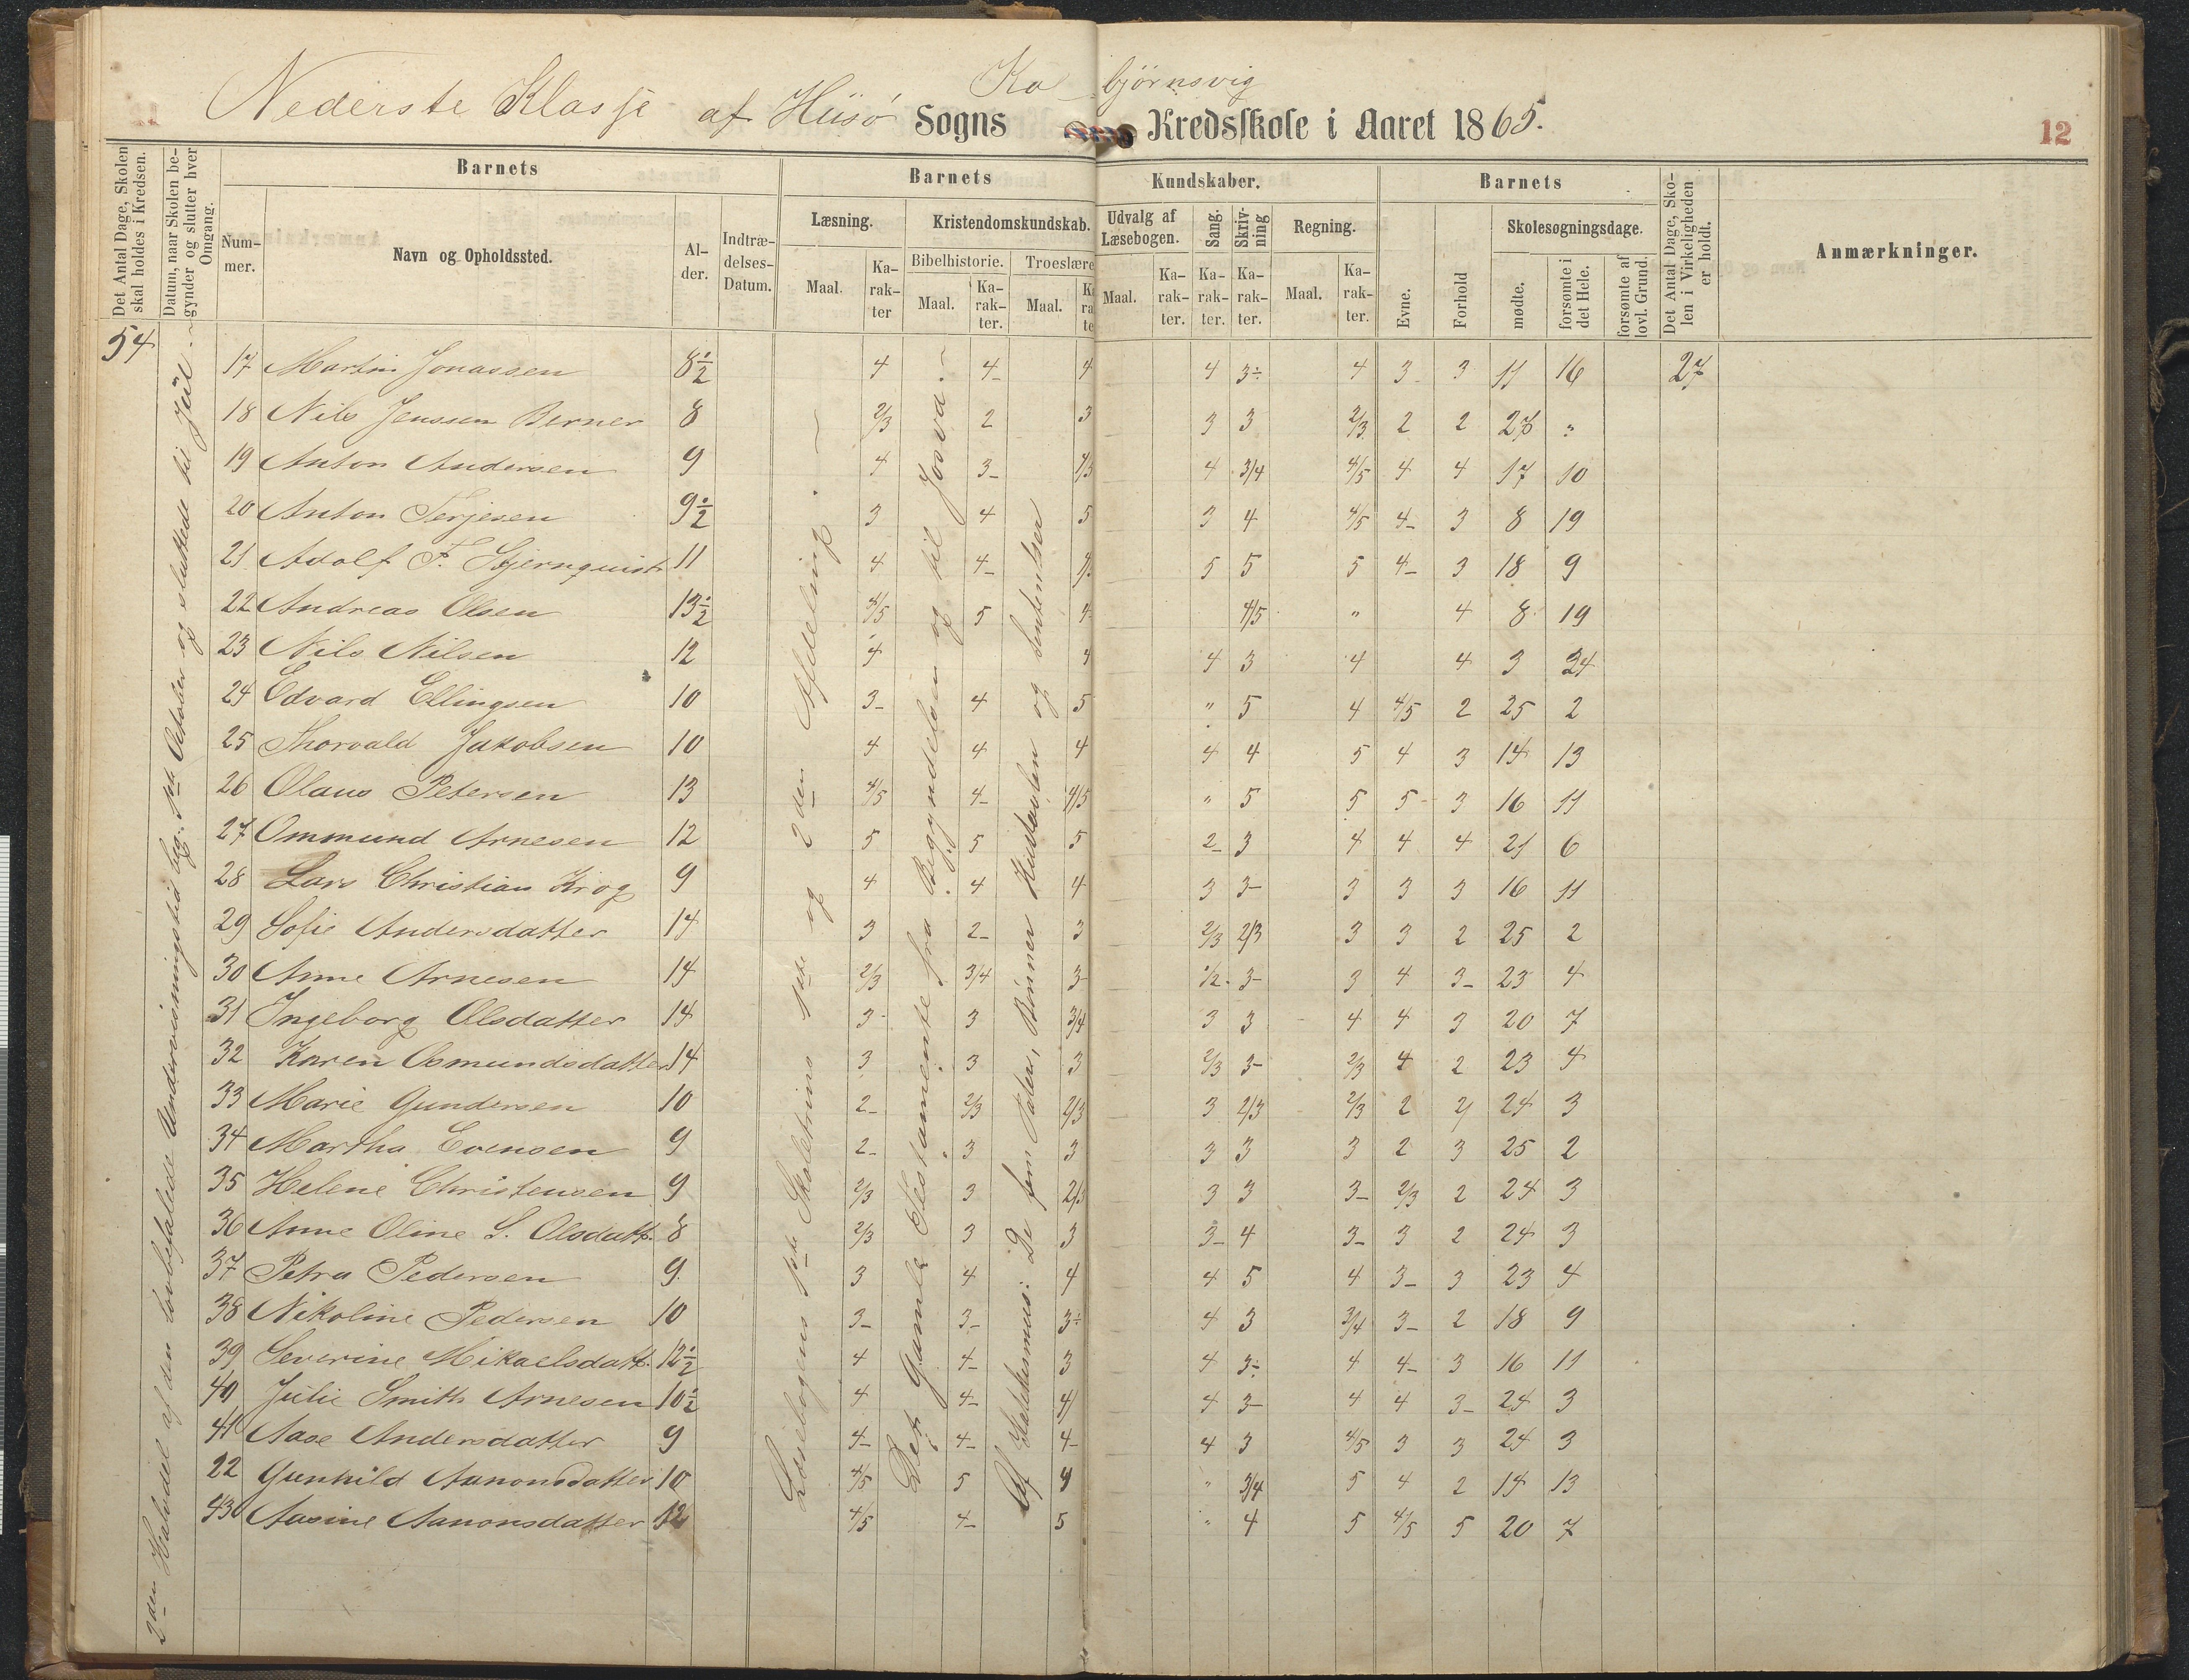 Nederste Klasse af Hisø Sogns Kolbjørnsvig Kredsskole i Aaret 1865.
12
Det Antal Dage, Skolen skal holdes i Kredsen.
Datum, naar Skolen begynder og slutter hver Omgang.
Barnets
Barnets
Kundskaber.
Barnets
Det Antal Dage, Skolen i Virkeligheden er holdt.
Anmærkninger.
Nummer.
Navn og Opholdssted.
Alder.
Indtrædelses-Datum.
Læsning.
Kristendomskundskab.
Udvalg af Læsebogen.
Sang.
Skrivning
Regning.
Evne.
Forhold
Skolesøgningsdage.
Bibelhistorie.
Troeslære
Maal.
Karakter
Maal.
Karakter.
Maal.
Maal.
Karakter.
Karakter.
Karakter.
Maal.
Karakter.
mødte.
forsømte i det Hele.
forsømte af lovl. Grund.
54
2den Halvdel af den lovbefalede Undervisningstid beg. 1ste October og sluttede til Jul
Læsebogens 1ste Skoletrins 1ste og 2den Afdeling.
Det Gamle Testamente fra Begyndelsen og til Josva.
Af Katekismus: De fem Parter, Bønner Hustavlen og Sententser
17 Martin Jonassen 8½ 4 4- 4 4 3÷ 4 3- 3 11 16 27
18 Nils Jenssen Berner 8 2/3 2 3 3 3 2/3 2 2 27 "
19 Anton Andersen 9 4 3- 4/5 4 3/4 4/5 4 4 17 10
20 Anton Terjesen 9½ 3 4 5 3 4 4/5 4- 3 8 19
21 Adolf F. Stjernquist 11 4 4- 4 5 5 5 4- 3 18 9
22 Andreas Olsen 13½ 4/5 5 4 4/5 " 4 8 19
23 Nils Nilsen 12 4 4 4 3 4 4 3 24
24 Edvard Ellingsen 10 3- 4 5 " 5 4 4/5 2 25 2
25 Thorvald Jakobsen 10 4 4 4 4 4 5 4 3 14 13
26 Olaus Petersen 13 4/5 4- 4/5 " 5 5 5- 3 16 11
27 Ommund Arnesen 12 5 5 5 2- 3 4 4 4 21 6
28 Lars Christian Krog 9 4 4 4 3 3- 3 3 3 16 11
29 Sofie Andersdatter 14 3 2- 3 2/3 2/3 3 3 2 25 2
30 Anne Arnesen 14 2/3 3/4 3- 1/2 3- 3 4 3- 23 4
31 Ingeborg Olsdatter 14 3- 3 3/4 3 3 4 4 3 20 7
32 Karen Osmundsdatter 14 3 3 3 2/3 3- 2/3 4 2 23 4
33 Marie Gundersen 10 2- 2/3 2/3 3 2/3 2/3 2 2 24 3
34 Martha Evensen 9 2- 3 3 3 3 3 2 3 25 2
35 Helene Christensen 9 2/3 3 2/3 3 3 3- 2/3 2 24 3
36 Anne Oline S. Olsdatt. 8 2/3 3 3 3- 4 3- 3 2 24 3
37 Petra Pedersen 9 3 4 4 4 5 4 3- 3 23 4
38 Nikoline Pedersen 10 3- 3- 3÷ 4 3 3/4 3- 2 18 9
39 Severine Mikaelsdatt. 12½ 4 4- 3 4 3÷ 4 4- 3 16 11
40 Julie Smith Arnesen 10½ 4 4- 4 4 3- 4 4 3- 24 3
41 Aase Andersdatter 9 4- 4- 4- 4 3 4/5 3 3 24 3
22 Gunhild Aanonsdatter 10 4/5 5 4 " 3/4 5 4 2 14 13
43 Aasine Aanonsdatter 12 4/5 4- 5 " 4 5 4/5 5 20 7